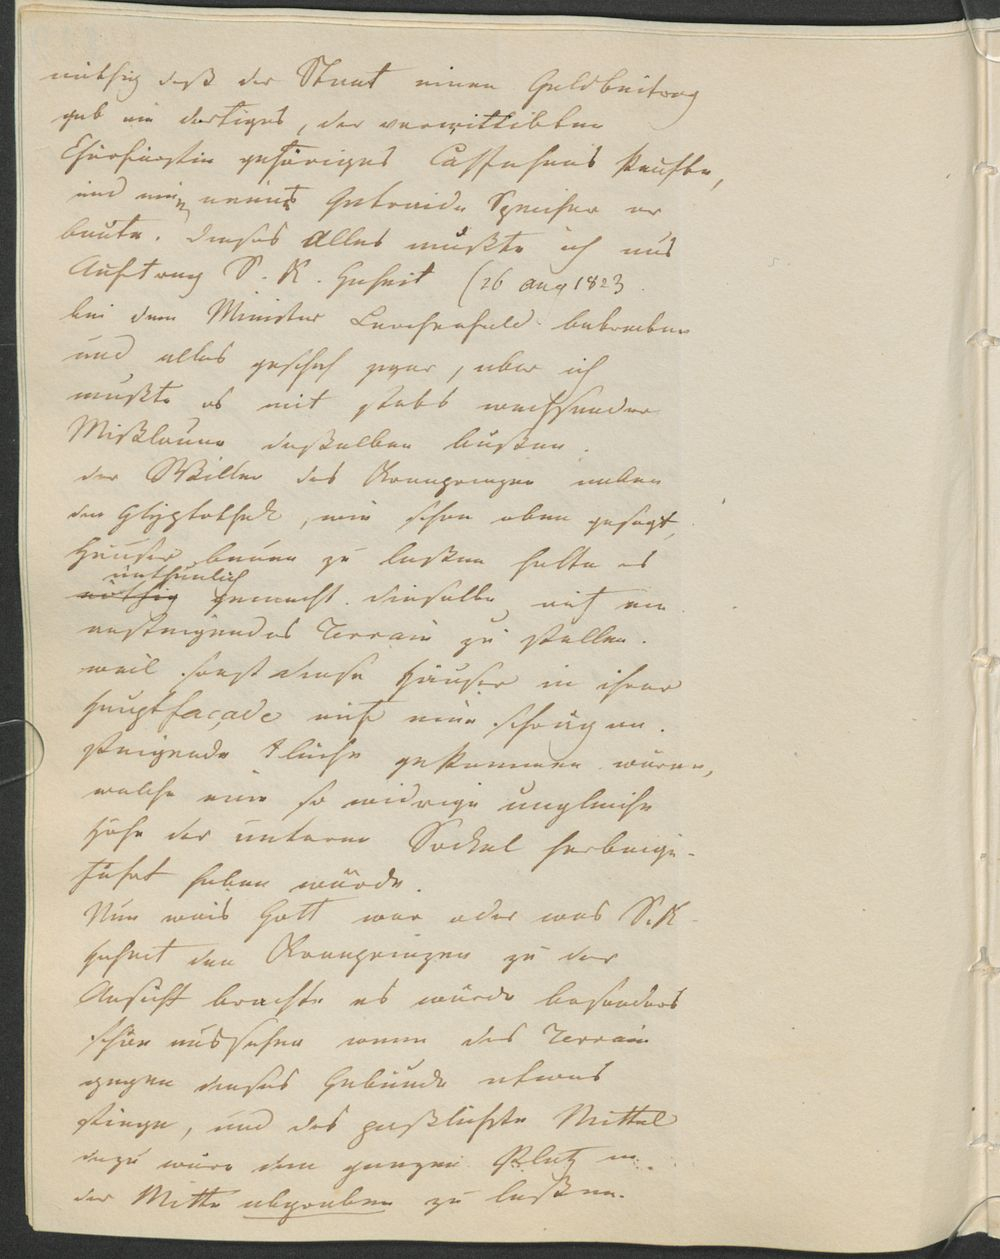 nöthig daß der Staat einen Geldbeitrag
gab ein dortiges, der verwittibten
Churfürstin gehöriges Casthaus kaufte,
und ein neues Getraide Speicher er
baute. Dieses Alles mußte ich aus
Auftrag S. K. Hoheit (26 aug 1823
bei dem Minister Lerchenfeld betreiben
und alles geschah zwar, aber ich
mußte es mit stets wachsender
Mißlaune desselben büßen.
der Willen des Kronprinzen neben
der Glyptothek, wie schon oben gesagt,
Häuser bauen zu laßen hatte es
unthunlich
nöthig gemacht dieselbe auf ein
ansteigendes Terrain zu stellen.
weil sonst diese Häuser in ihrer
Hauptfaçade auf eine schräg an.
steigende Fläche gekommen wären,
welche eine so widrige ungleiche
Höhe der unteren Sockel herbeige-
führt haben würde.
Nun weis Gott wer oder was S. K
Hoheit den Kronprinzen zu der
Ansicht brachte es würde besonders
schön aussehen wenn das Terrain
gegen dieses Gebäude etwas
stiege, und das paßlichste Mittel
dazu wäre den ganzen Platz in
der Mitte abgraben zu laßen.